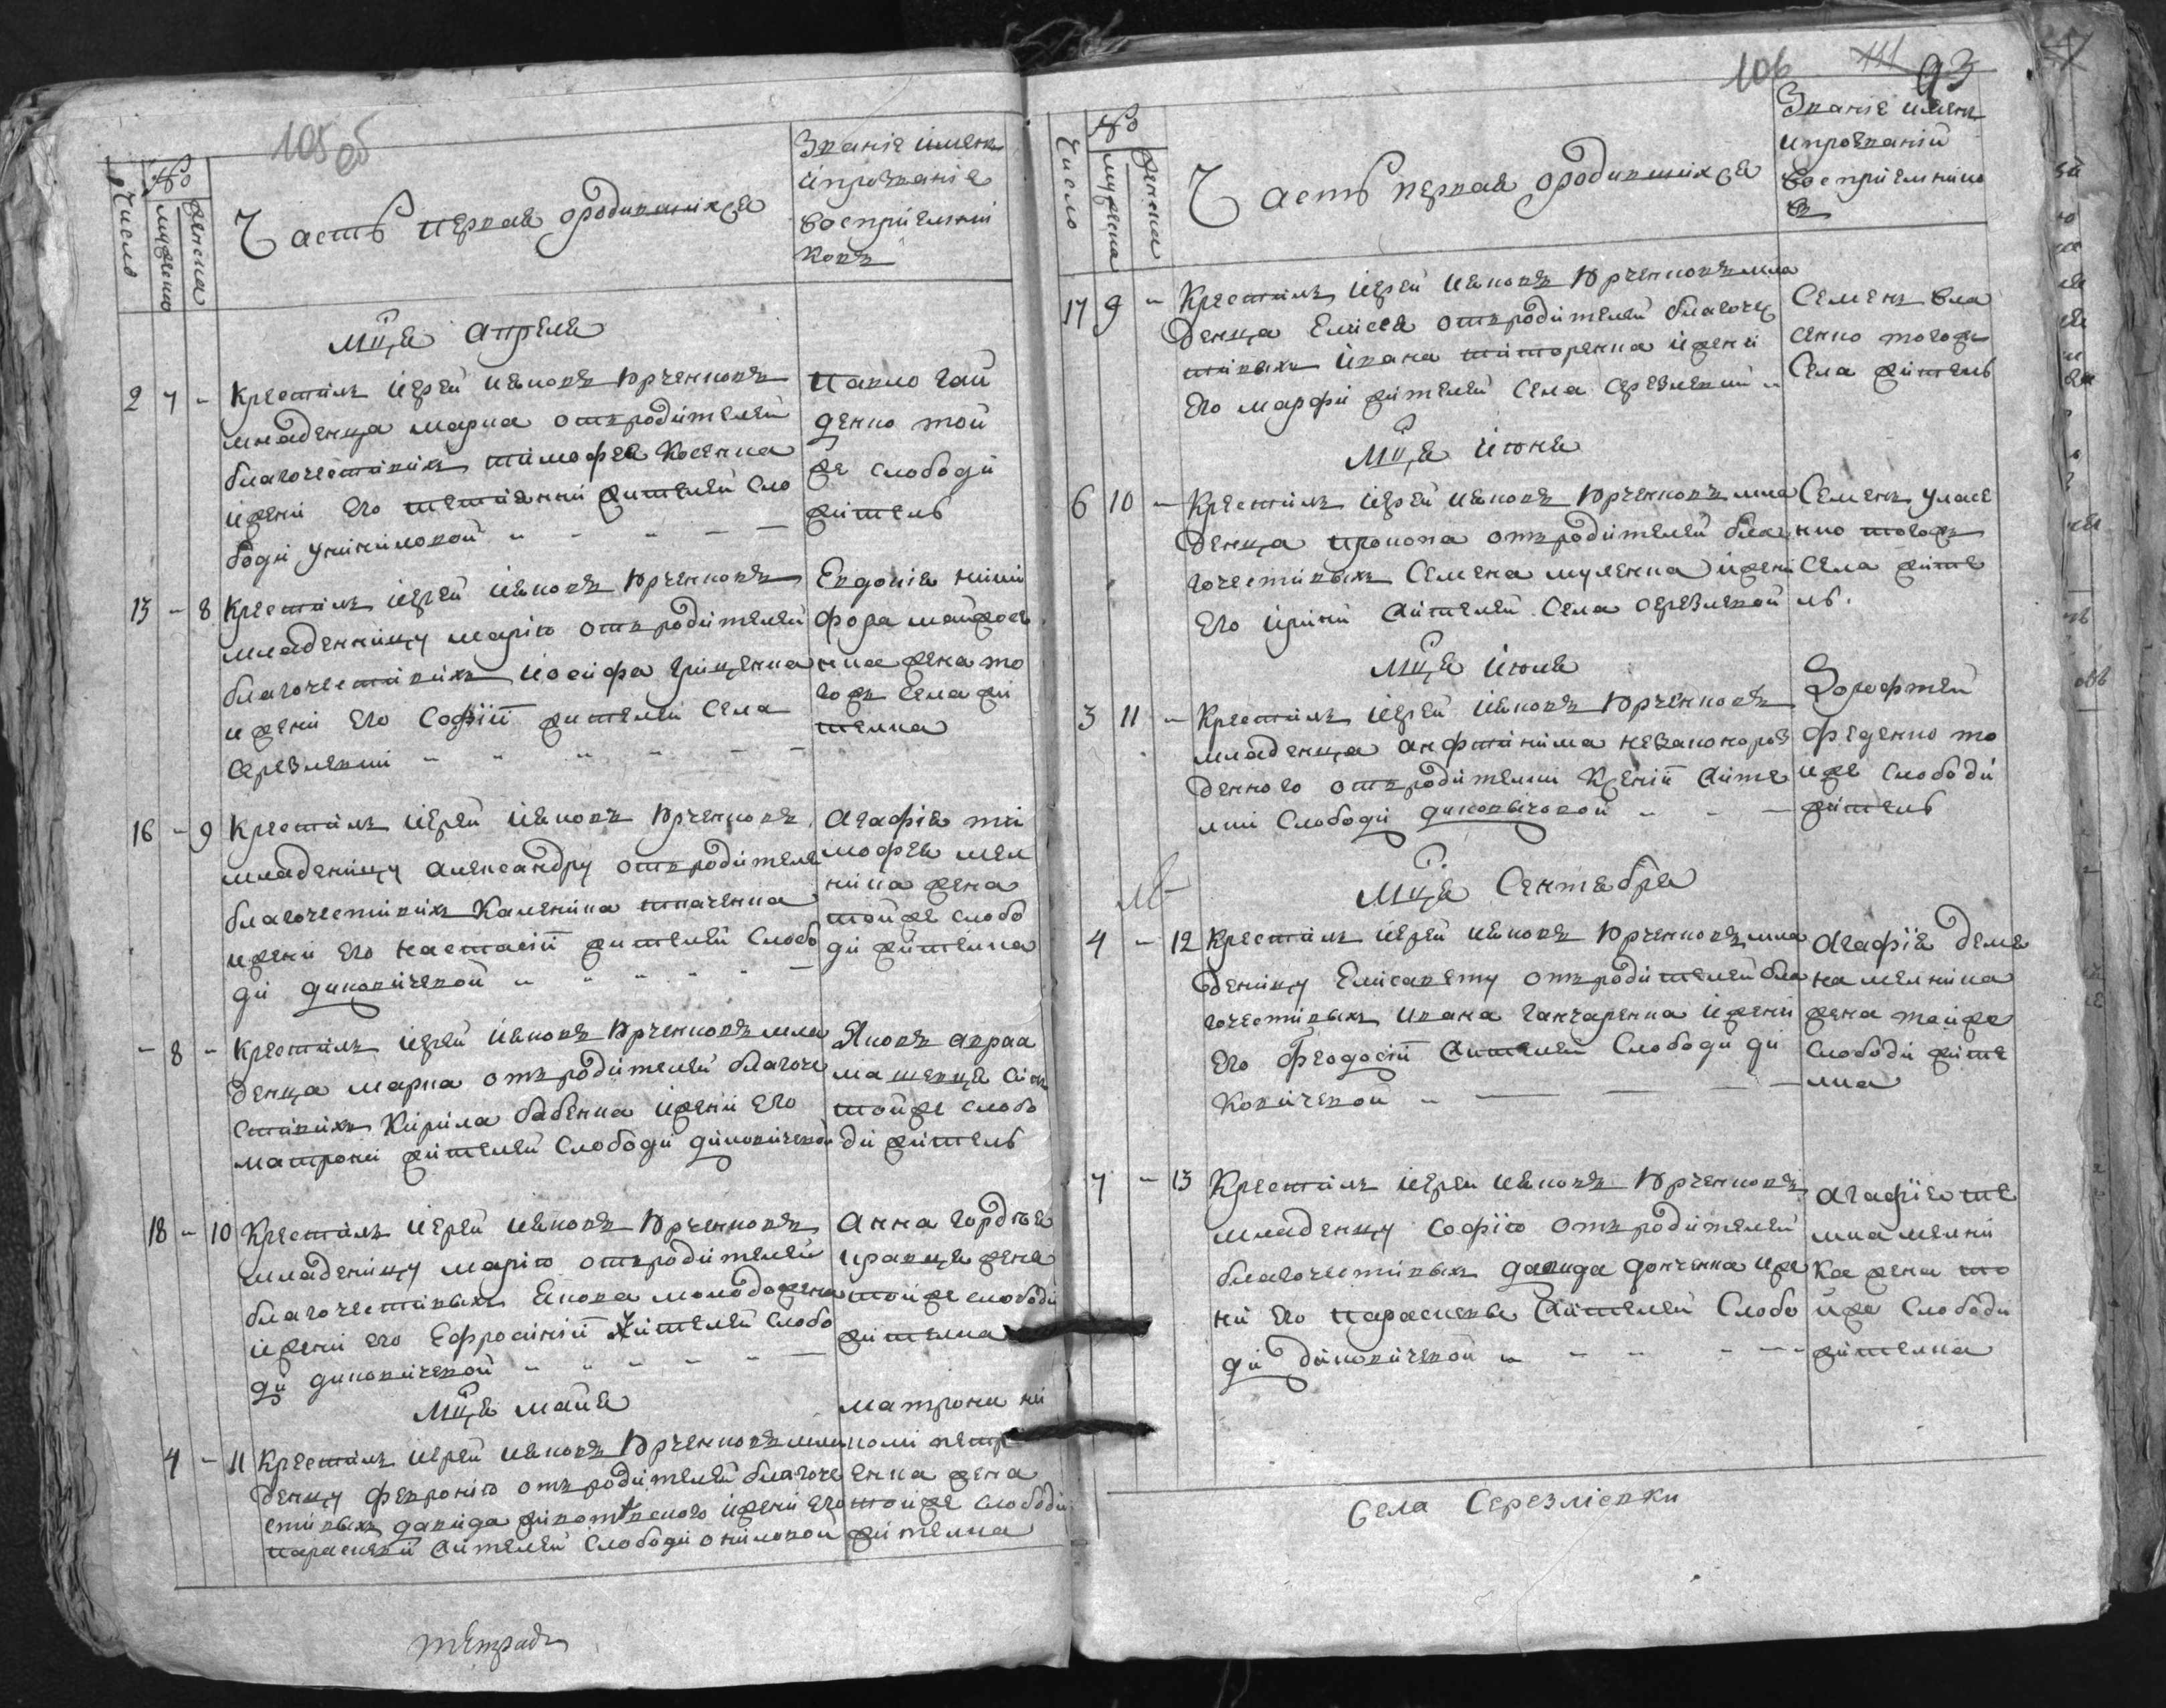 105 об
Число
№
мужеска
женска
Часть первая ородившихся
Званіе именъ
ипрозванія
воспріемни
ковъ
Мца Апреля
2 7 - Крестилъ іерей Иаковъ Юрченковъ
младенца марка отъ родителей
благочестивихъ тимофея Косенка
ижени его
жителей сло
боди
Павло Гай
денко той
же слободи
житель
13 - 8 Крестилъ іерей Иаковъ Юрченковъ
младеницу марію отъ родителей
благочестивихъ Иосифа Грищенка
ижени его Софіи жителей села
Серезлевки
Евдокія ники
фора
жена то
гожъ села жи
телка
16 - 9 Крестилъ іерей Иаковъ Юрченковъ
младеницу александру отъ родителе
благочестивихъ Каленика ткаченка
ижени его настасіи жителей слобо
ди диковичевой
Агафія ти
мофея мел
ника жена
тойже слобо
ди жителка
- 8 - Крестилъ іерей Иаковъ Юрченковъ мла
денца марка отъ родителей благоче
стивихъ Кирила бабенка ижени его
матрони жителей слободи диковичевой
Яковъ авраа
тойже слобо
ди житель
18 - 10 Крестилъ іерей Иаковъ Юрченковъ
младеницу марію отъ родителей
благочестивыхъ Якова молодоженя
ижени его Ефросиніи жителей слобо
ди диковичевой
Анна гордѣя
кравця жена
тойже слободи
жителка
Мца майя
4 - 11 Крестилъ іерей Иаковъ Юрченковъ мла
денцу февронію отъ родителей благоче
стивыхъ давида животовского ижени его
параскеви жителей слободи
матрона ни
енка жена
тойже слободи
жителка
тетрадь
106 111 93
Число
№
мужеска
женска
Часть первая ородившихся
Званіе именъ
ипрозваній
воспріемнико
въ
17 9 - Крестилъ іерей Иаковъ Юрченковъ мла
денца Елисея отъ родителей благочес
тивыхъ Ивана титоренка ижени
его марфи жителей села Серезлевки
Семенъ вла
сенко тогожъ
села житель
Мца июня
6 10 - Крестилъ іерей Иаковъ Юрченковъ мла
денца прокопа отъ родителей бла
гочестивыхъ Семена муленка ижени
его ирини жителей села серезлевки
Семенъ уласе
нко тогожъ
села жите
ль.
Мца июля
3 11 - Крестилъ іерей Иаковъ Юрченковъ
младенца анфтинима незаконорож
денного отъ родителки Ксеніи жите
лки слободи диковичовой
Дорофтей
феденко то
иже слободи
житель
Мца Сентября
4 - 12 Крестилъ іерей Иаковъ Юрченковъ мла
деницу Елисавету отъ родителей бла
гочестивыхъ Ивана ганчаренка ижени
его Феодосіи жителей слободи ди
ковичевой
Агафія демя
на мелника
жена тойже
слободи жите
лка
7 - 13 Крестилъ іерей Иаковъ Юрченковъ
младенцу Софію отъ родителей
благочестивыхъ давида донченка иже
ни его параскеви жителей слобо
ди диковичевой
Агафія
мелни
ка жена то
йже слободи
жителка
Села Серезліевки